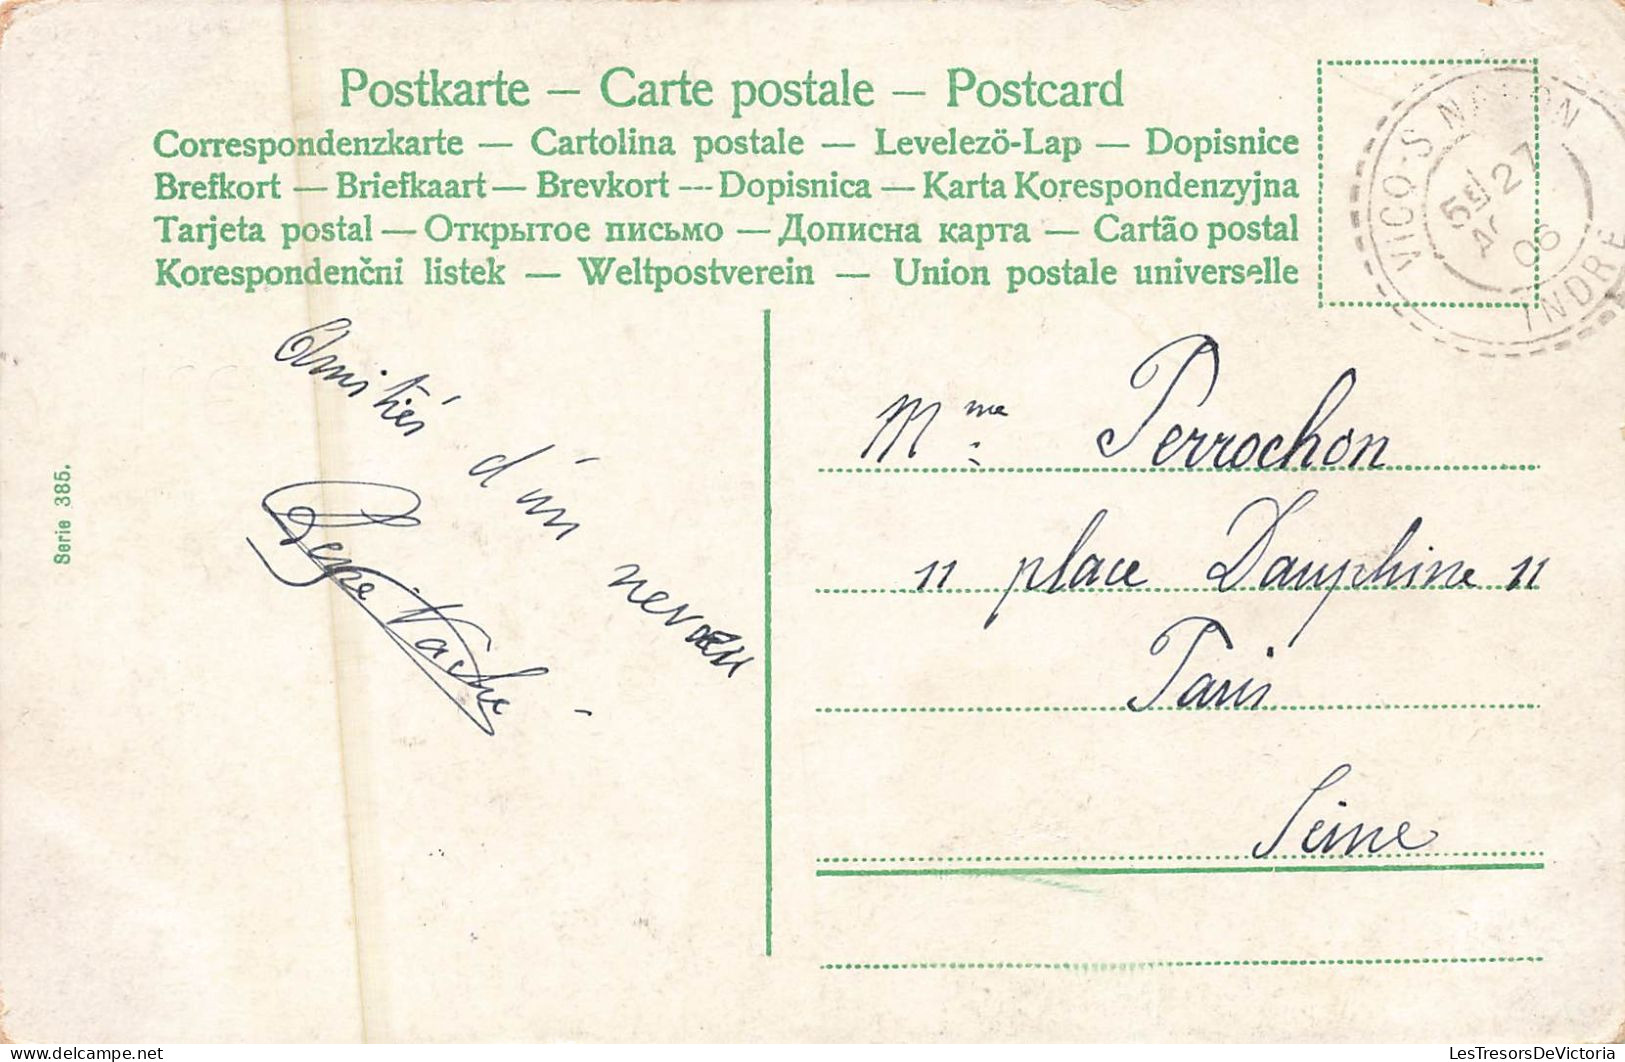 Postkarte – Carte postale – Postcard
Correspondenzkarte — Cartolina postale — Levelezö-Lap — Dopisnice
Brefkort — Briefkaart — Brevkort --- Dopisnica — Karta Korespondenzyjna
Tarjeta postal — Открытое письмо — Дописна карта — Cartão postal
Korespondenčni listek — Weltpostverein — Union postale universelle
VICQ-S NAHON
27
06
INDRE
Serie 385.
Amitiés
d'un
neveu
Vaché
Mme Perrochon
11 place Dauphine 11
Paris
Seine
LesTresorsDeVictoria